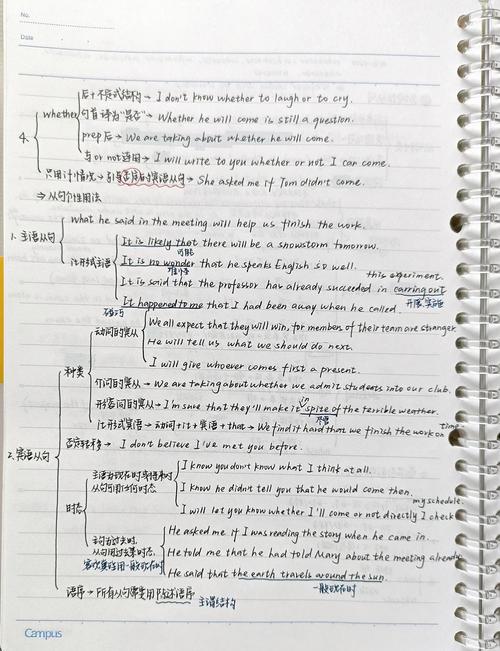 No.
Date
后+不定式结构→ I don't know whether to laugh or to cry.
whether 句首译为"是否"→ Whether he will come is still a question.
4. prep后→ We are taking about whether he will come.
与or not连用→ I will write to you whether or not I can come.
只用if情况→引导否定的宾语从句→ She asked me if Tom didn't come.
⇒ 从句个性用法
What he said in the meeting will help us finish the work.
1. 主语从句
It is likely that there will be a snowstorm tomorrow.
可能
it作形式主语 It is no wonder that he speaks English so well.
难怪
this experiment.
It is said that the professor has already succeeded in carrying out
开展,实施
It happened to me that I had been away when he called.
碰巧
We all expect that they will win, for members of their team are stronger.
动词的宾从 He will tell us what we should do next.
I will give whoever comes first a present.
种类
介词的宾从→ We are taking about whether we admit students into our club.
形容词的宾从→ I'm sure that they'll make it spite of the terrible weather.
不管
it作形式宾语→ 动词+it+宾补+that→ We find it hard that we finish the work on time.
否定转移→ I don't believe I've met you before.
2. 宾语从句
I know you don't know what I think at all.
主语为现在时等将来时
从句可用任何时态 I know he didn't tell you that he would come then.
my schedule
I will let you know whether I'll come or not directly I check
时态
He asked me if I was reading the story when he came in.
主句为过去时,
从句用过去某时态. He told me that he had told Mary about the meeting already
客观真理用一般现在时
He said that the earth travels around the sun.
一般现在时
语序→所有从句需要用陈述语序
主谓结构
Campus